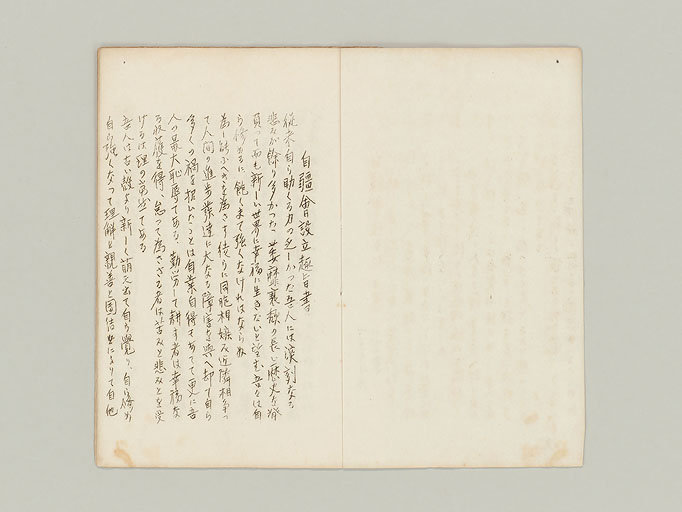 自彊會設立趣旨書
従来自ら助くる力の乏しかった吾人には深刻なる
悲みが余り多かった 萎靡衰頽の長い歴史を背
負って而も新しい世界に幸福に生きたいと望む吾々は自
ら修むるに飽くまで強くなければならぬ
為し能ふべきを為さず徒らに同胞相嫉み近隣相争っ
て人間の進歩発達に大なる障害を與へ却て自ら
多くの禍を招いたことは自業自得であって更に吾
人の最大恥辱である、勤労して耕す者は幸福な
る収穫を得、怠って為さざる者は苦みと悲みとを受
けるは理の当然である
吾人は古い殻より新しく萌え出て自ら覚り、自ら修め
自ら強くなって理解と親善と団結とによりて自他